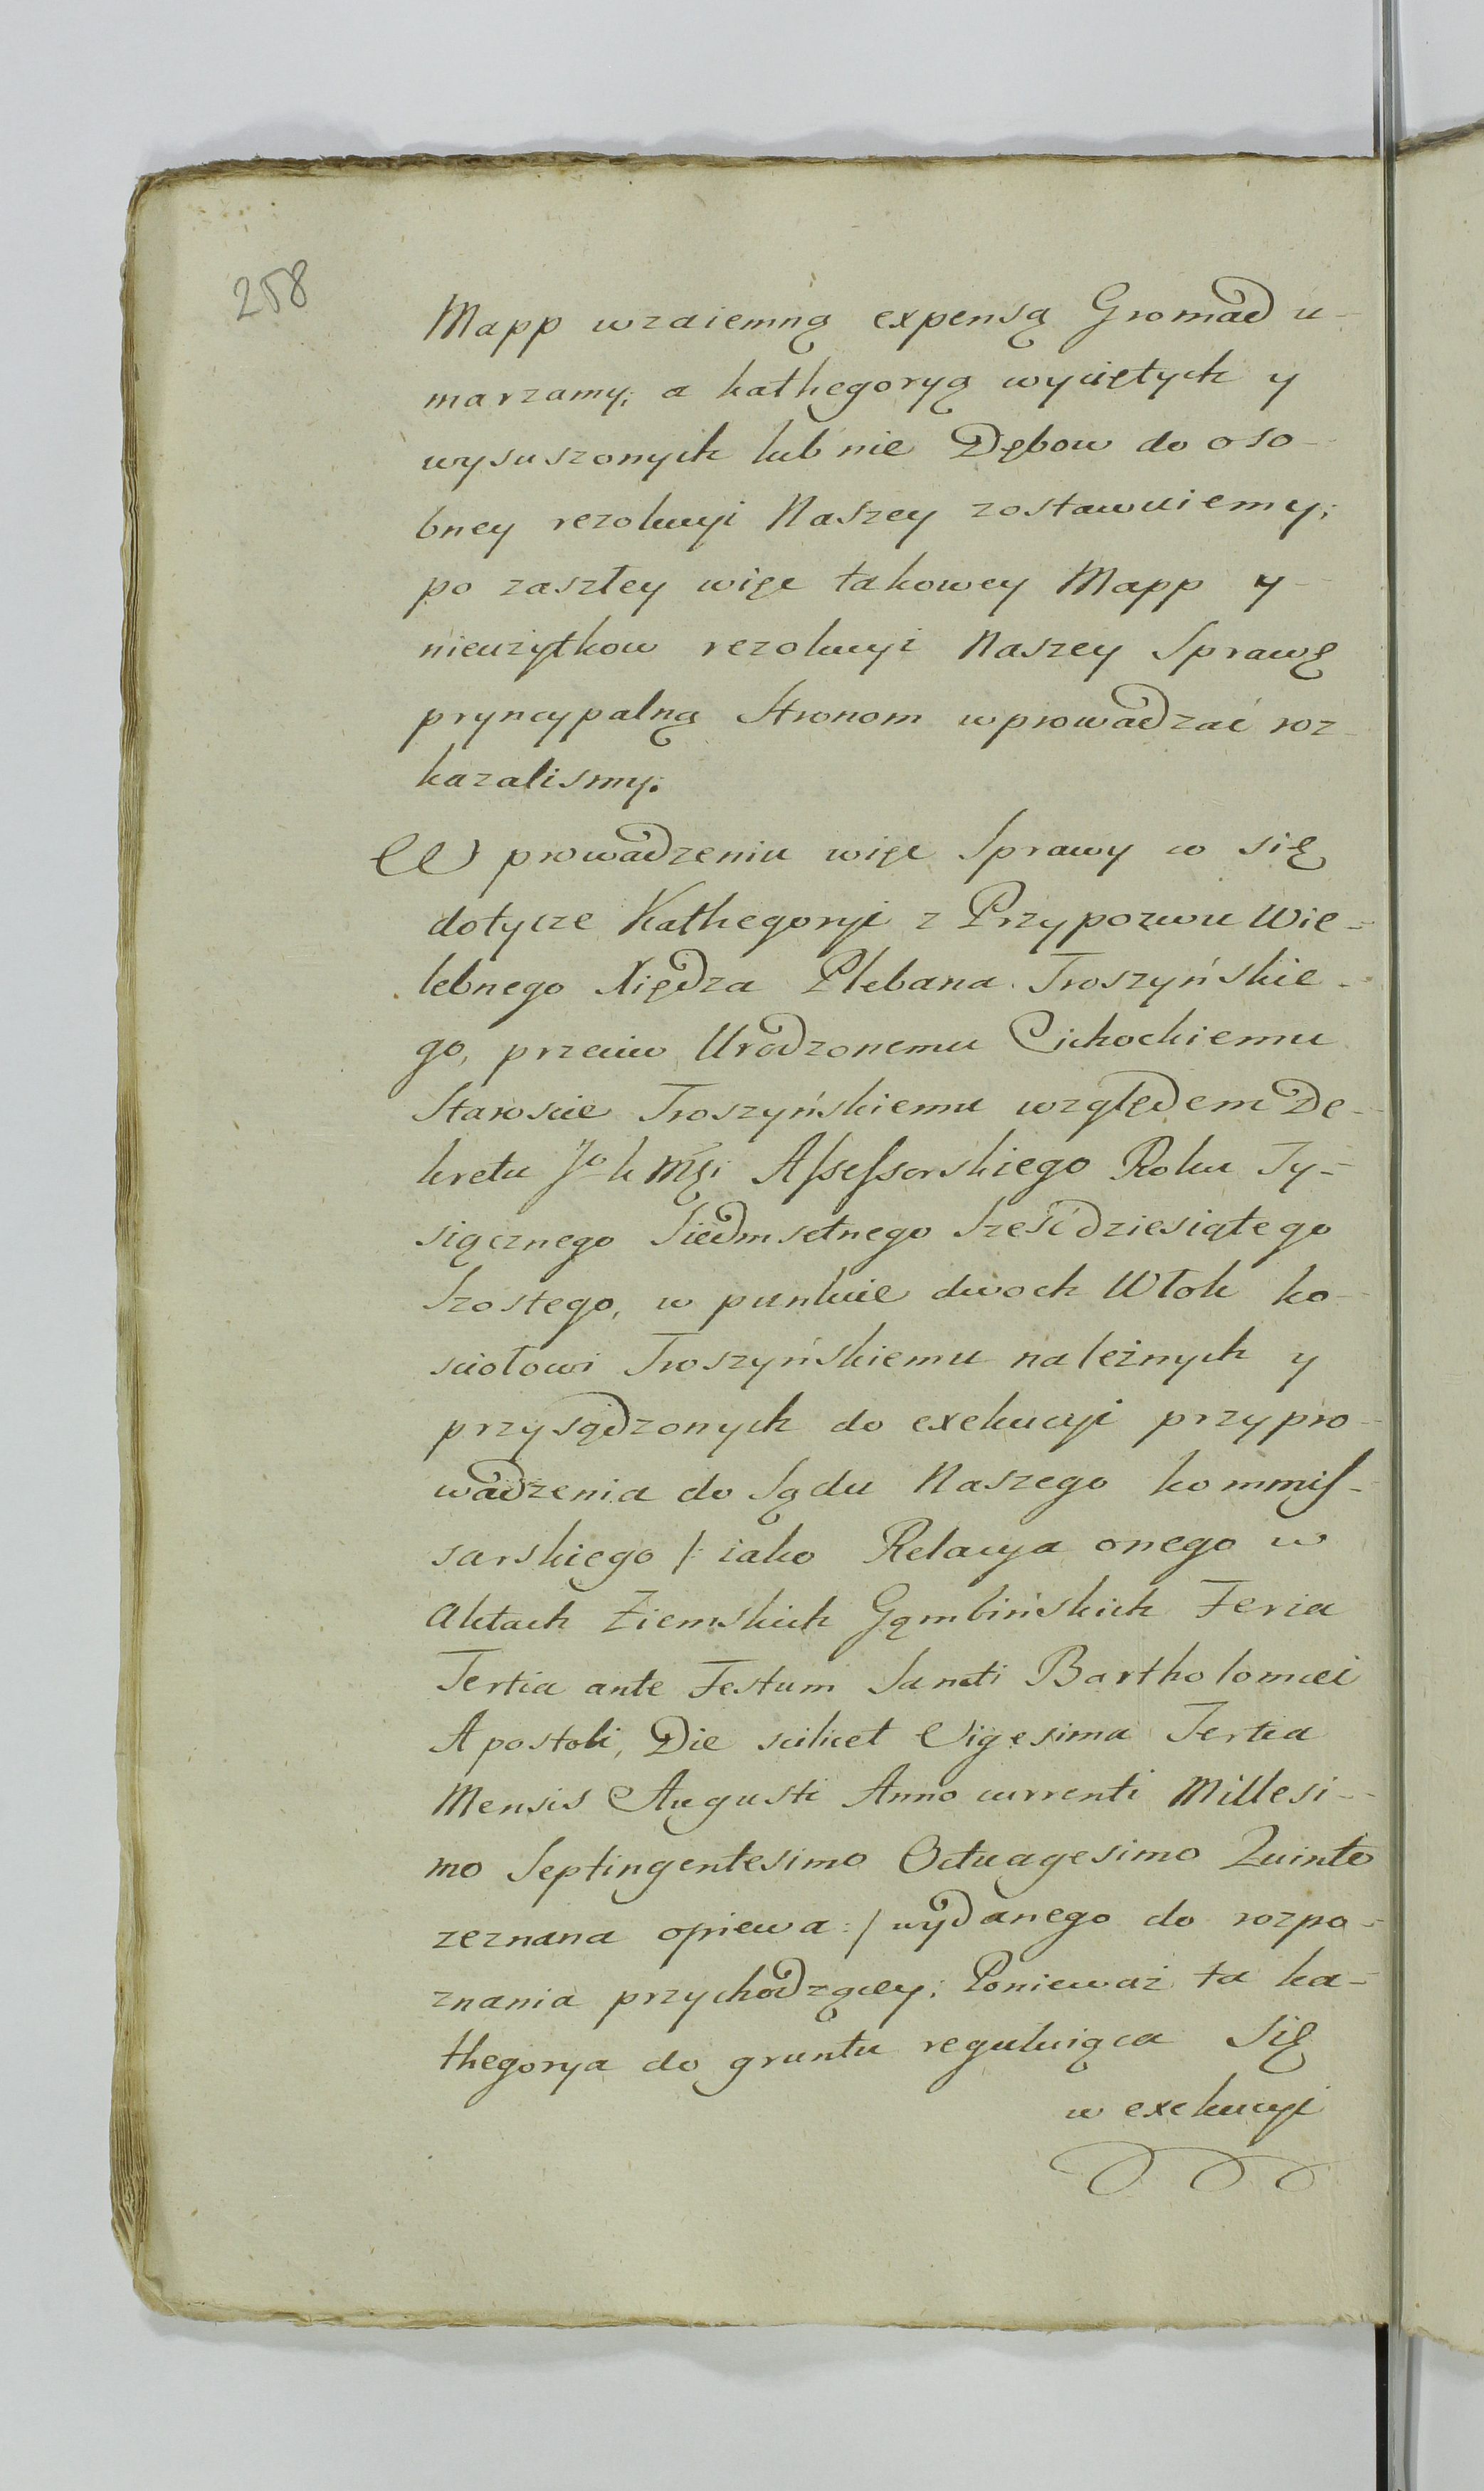 258
Mapp wzaiemną expensą Gromad u-
marzamy; a kathegoryą wyciętych y
wysuszonych lub nie Dębow do oso-
bney rezolucyi Naszey zostawuiemy;
po zaszłey więc takowey Mapp y
nieużytkow rezolucyi Naszey Sprawę
pryncypalną Stronom wprowadzać roz-
kazalismy.
W prowadzeniu więc Sprawy w się
dotycze Kathegoryi z Przypozwu Wie-
lebnego Xiędza Plebana Troszyńskie-
go, przeciw Urodzonemu Cichockiemu
Staroscie Troszyńskiemu względem De-
kretu Jo k Mci Aſseſsorskiego Roku Ty-
siącznego Siedmsetnego Sześćdziesiątego
Szostego, w punkcie dwoch Włok ko-
sciołowi Troszyńskiemu należnych y
przysądzonych do exekucyi przypro-
wadzenia do Sądu Naszego kommiſ-
sarskiego /: iako Relacya onego w
Aktach Ziemskich Gąmbińskich Feria
Tertia ante Festum Sancti Bartholomæi
Apostoli, Die scilicet Vigesima Tertia
Mensis Augusti Anno currenti Millesi-
mo Septingentesimo Octuagesimo Quinto
zeznana opiewa :/ wydanego do rozpo-
znania przychodzącey; Ponieważ ta ka-
thegorya do gruntu reguluiąca się
w exekucyi